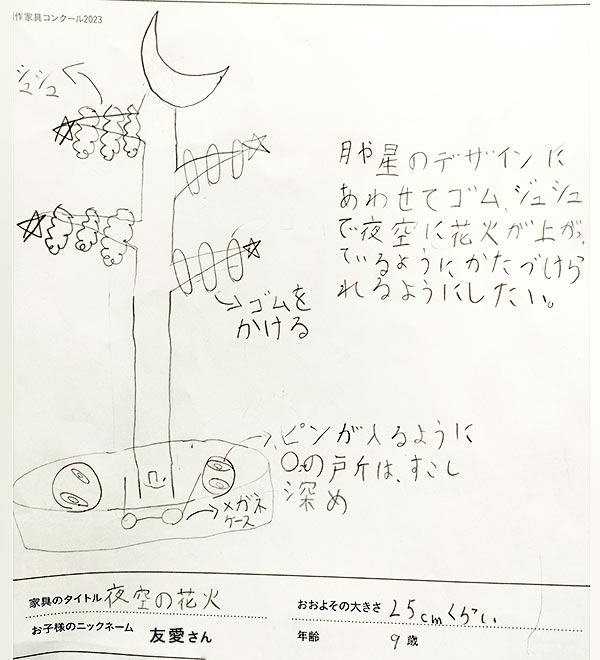 作家具コンクール2023
シュシュ
月や星のデザインに
あわせてゴム、ジュシュ
で夜空に花火が上がっ
ているようにかたづけら
れるようにしたい。
ゴムを
かける
ピンが入るように
〇の戸斤は、すこし
深め
メガネ
ケース
家具のタイトル 夜空の花火
おおよその大きさ 25cmくらい
お子様のニックネーム 友愛さん
年齢 9歳